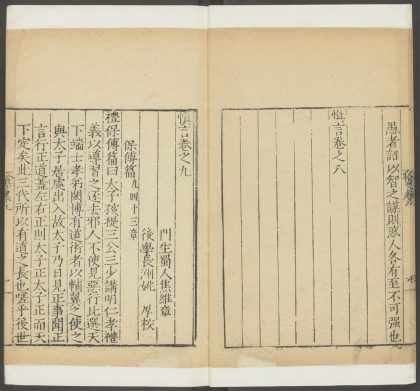 愚者詔以智之謀則惑人各有至不可強也
慎言卷之八
慎言卷之九
門生蜀人焦維章
後學長湖姚 厚校
保傅篇 九四十三章
禮保傅篇曰太子孩提三公三少講明仁孝禮
義以導習之逐去邪人不使見惡行比選天
下端士孝弟閎博有道術者以輔翼之使之
與太子居處出入故太子乃目見正事聞正
言行正道蓋左右正則太子正太子正而天
下定矣此三代所以有道之長也嗟乎後世